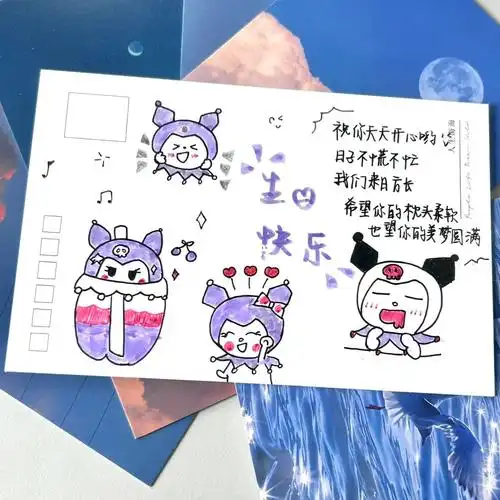 祝你天天开心哟
日子不慌不忙
我们来日方长
希望你的枕头柔软
也望你的美梦圆满
生日
快乐